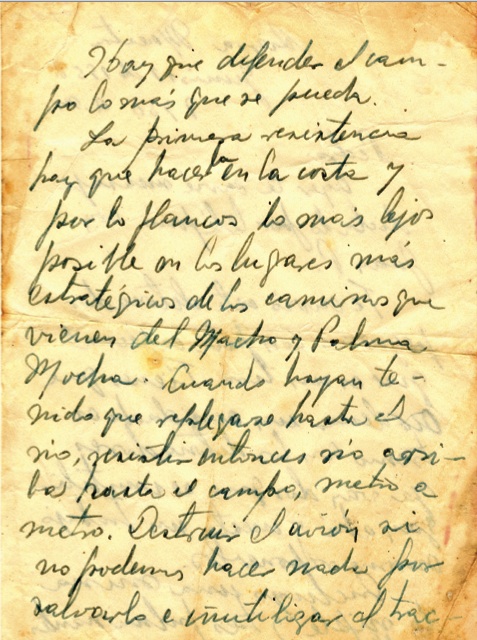 Hay que defender el cam-
po lo más que se pueda.
La primera resistencia
hay que hacerla en la costa y
por lo flancos lo más lejos
posible en los lugares más
estratégicos de los caminos que
vienen del Macho y Palma
Mocha. Cuando hayan te-
nido que replegarse hasta el
río, resistir entonces río arri-
ba hasta el campo, metro a
metro. Destruir el avión si
no podemos hacer nada por
salvarlo e inutilizar el trac-